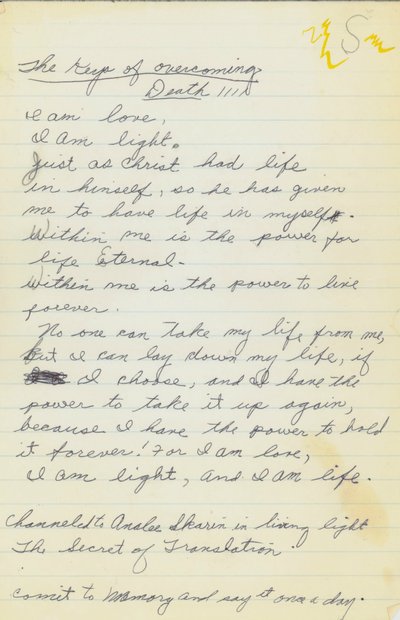 S
The Keys of overcoming
Death
I am love,
I Am light.
Just as Christ had life
in himself, so he has given
me to have life in myself.
Within me is the power for
life Eternal-
Within me is the power to live
forever.
No one can take my life from me,
but I can lay down my life, if
I choose, and I have the
power to take it up again,
because I have the power to hold
it forever! For I am love,
I am light, and I am life.
Channeled to Analee Skarin in living light
The Secret of Translation.
comit to Memory and say it once a day.